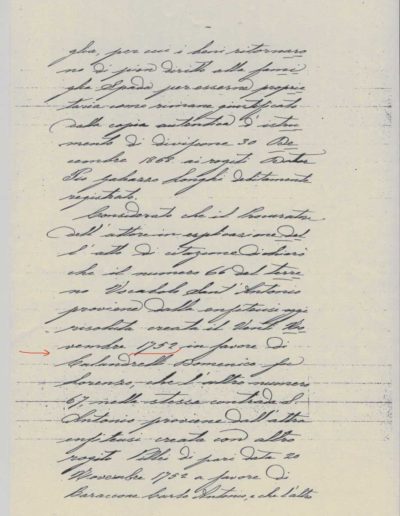 glia, per cui i beni ritornaro
no di pien diritto alla fami
glia Spada per esserne proprie
taria come rimane giustificato
dalla copia autentica d'istru
mento di divisione 30 De
cembre 1868 ai rogiti
Pio
registrato.
Considerato che il Procuratore
dell'attore in esplicazione del
l'atto di citazione dichiarò
che il numero 66 del terre
no Vocabolo Sant'Antonio
proviene dalla enfiteusi oggi
risoluta creata il Venti No
vembre 1752 in favore di
Calandrelli Domenico fu
Lorenzo, che l'altro numero
67 nella stessa contrada S.
Antonio proviene dall'altra
enfiteusi creata con altro
rogito di pari data 20
Novembre 1752 a favore di
Carlo Antonio, e che l'altro